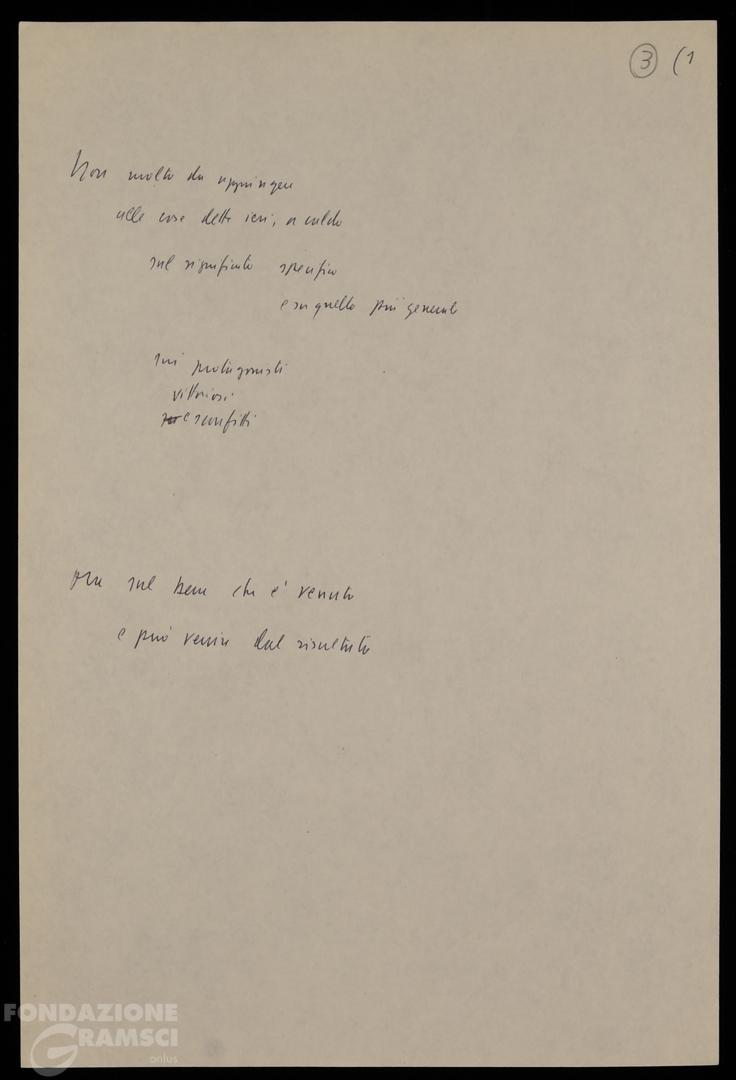 3 (1
Non molto da aggiungere
alle cose dette ieri, a caldo
sul significato specifico
e su quello più generale
sui protagonisti
vittoriosi
e sconfitti
Ma sul bene che e' venuto
e può venire dal risultato
FONDAZIONE
GRAMSCI
onlus